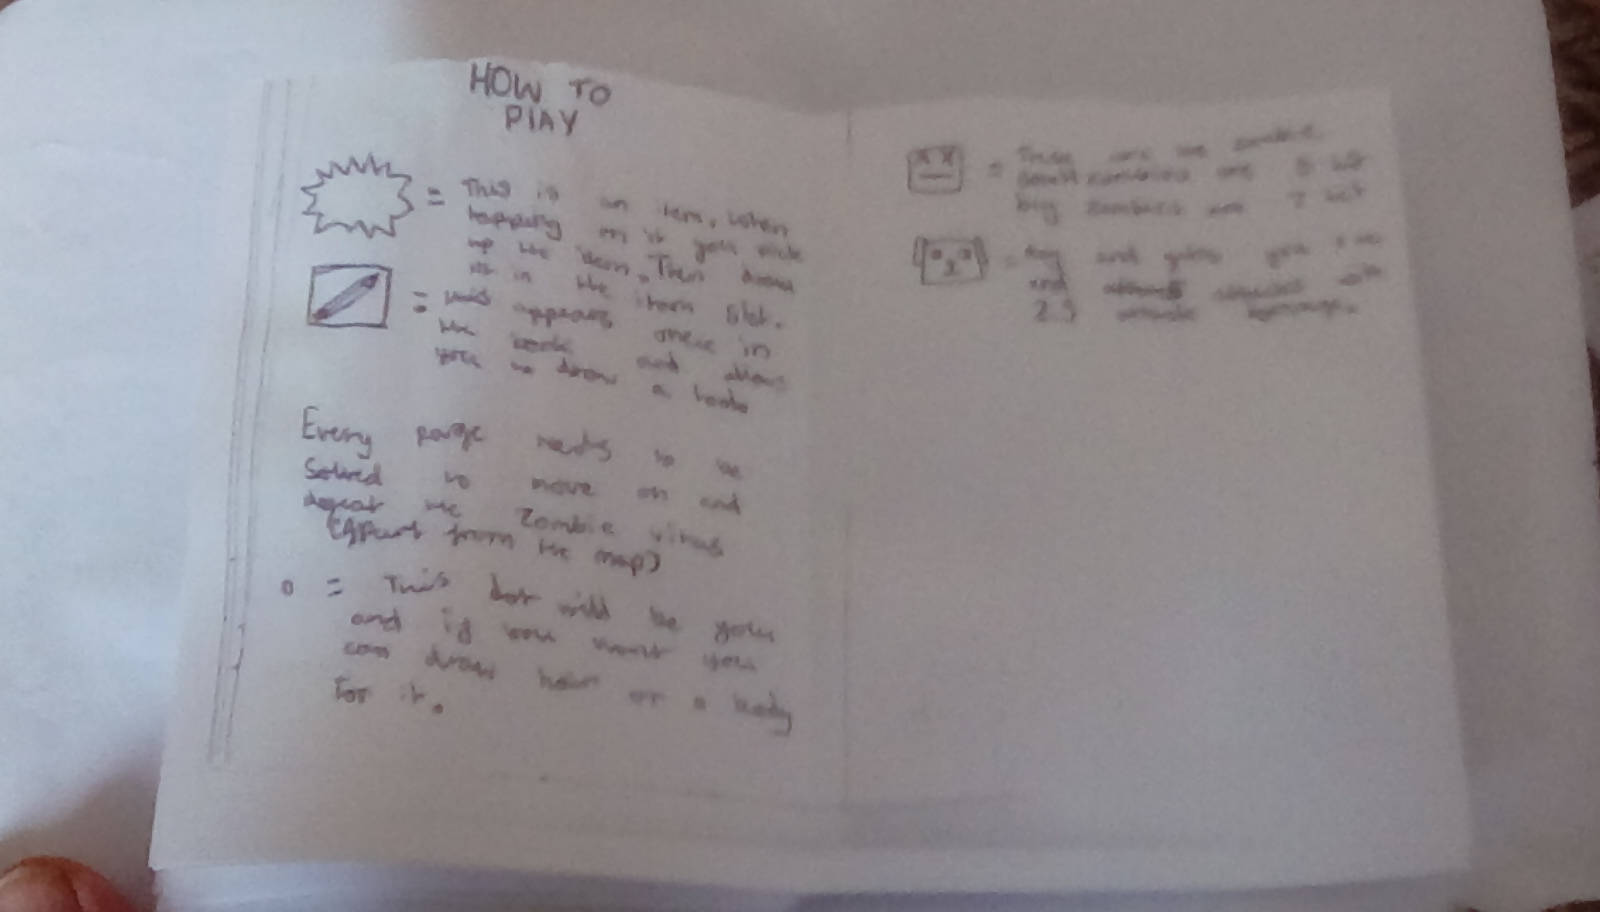 HOW TO
PlAY
= This is an item, when
tapping on it you pick
up the item. Then draw
it in the item slot.
= this appears once in
the book and allows
you to draw a
Every page needs to be
Solved to move on and
defeat the Zombie virus
(Apart from the map)
o = This dot will be you
and if you want you
can draw hair or a body
for it.
= These are the zombie.
small zombies are 5 hit
big zombies are 7 hit
=
and
2.5